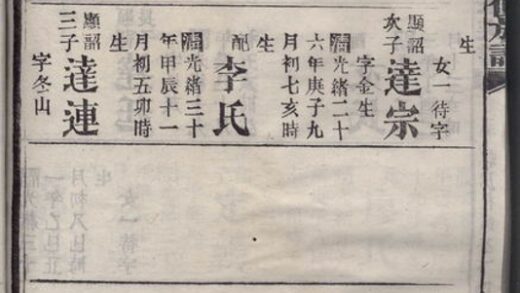 生
女一待字
顯詔
次子
達宗
字金生
清光緒二十
六年庚子九
月初七亥時
生
配
李氏
清光緒三十
年甲辰十一
月初五卯時
生
顯詔
三子
達連
字冬山